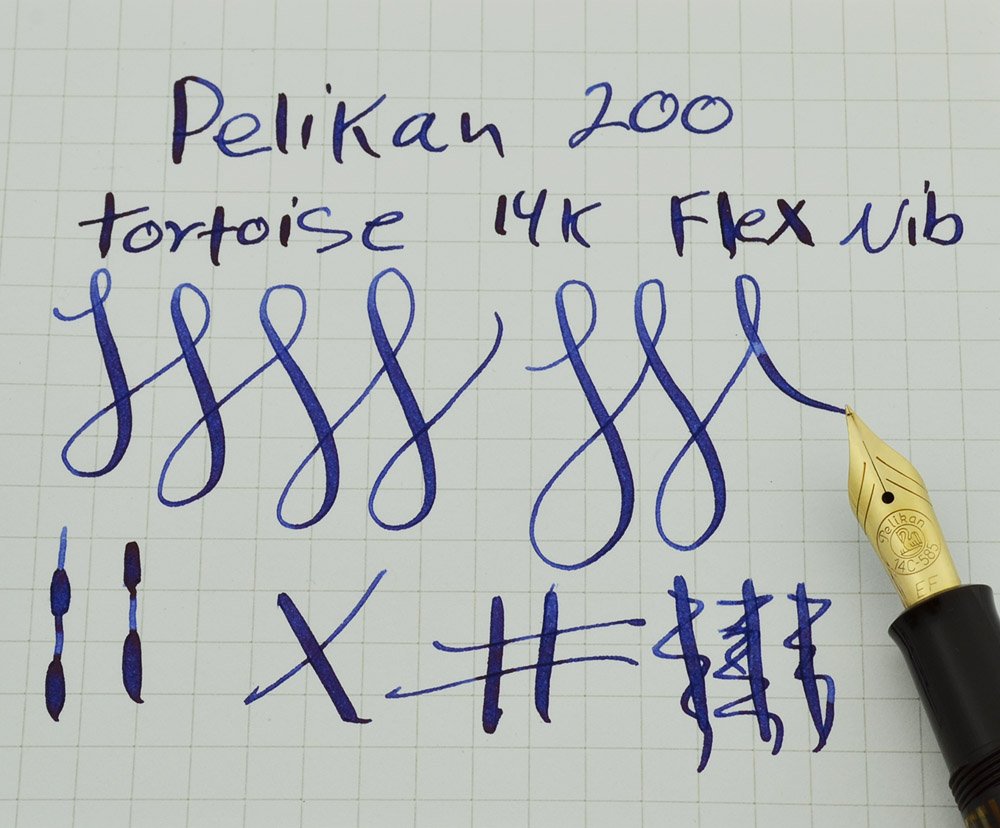 Pelikan 200
tortoise 14K Flex Nib
Pelikan
14C-585
EF